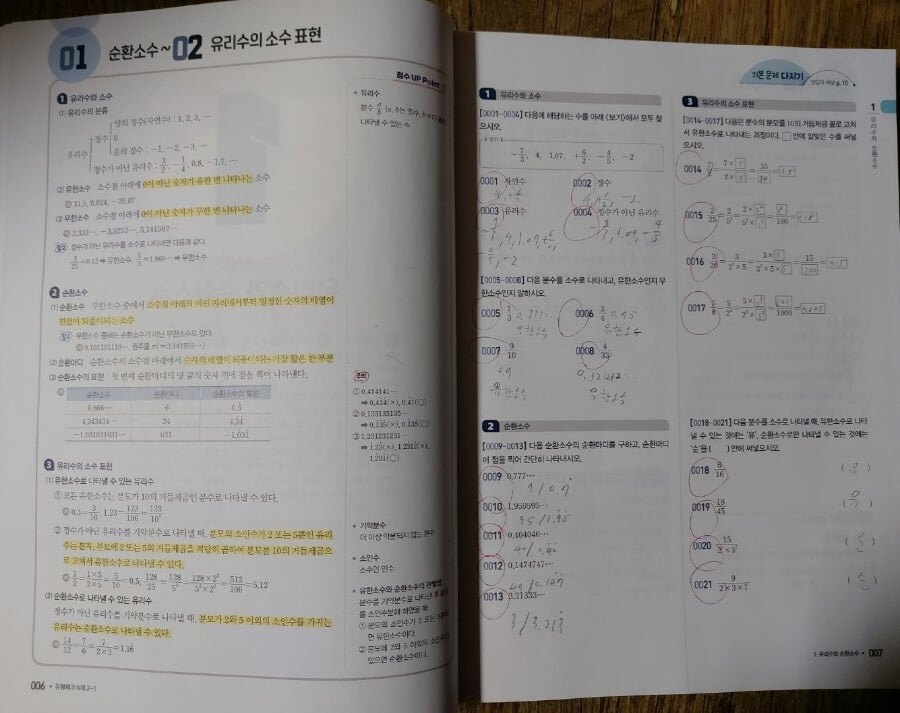 01 순환소수 ~ 02 유리수의 소수 표현
점수 UP Point
1 유리수와 소수
(1) 유리수의 분류
유리수
정수
양의 정수(자연수) : 1, 2, 3, …
0
음의 정수 : -1, -2, -3, …
정수가 아닌 유리수 : 3/2, -1/4, 0.8, -1.7, …
(2) 유한소수 소수점 아래에 0이 아닌 숫자가 유한 번 나타나는 소수
예 31.5, 0.024, -20.07
(3) 무한소수 소수점 아래에 0이 아닌 숫자가 무한 번 나타나는 소수
예 2.333…, -3.5252…, 3.141592…
참고 정수가 아닌 유리수를 소수로 나타내면 다음과 같다.
3/25=0.12 ➡ 유한소수, 5/3=1.666… ➡ 무한소수
2 순환소수
(1) 순환소수 무한소수 중에서 소수점 아래의 어떤 자리에서부터 일정한 숫자의 배열이
한없이 되풀이되는 소수
참고 무한소수 중에는 순환소수가 아닌 무한소수도 있다.
예 0.101101110…, 원주율 π=3.141592…
(2) 순환마디 순환소수의 소수점 아래에서 숫자의 배열이 되풀이되는 가장 짧은 한 부분
(3) 순환소수의 표현 첫 번째 순환마디의 양 끝의 숫자 위에 점을 찍어 나타낸다.
예
순환소수 순환마디 순환소수의 표현
0.666… 6 0.6̇
4.343434… 34 4.3̇4̇
-1.031031031… 031 -1.0̇31̇
3 유리수의 소수 표현
(1) 유한소수로 나타낼 수 있는 유리수
① 모든 유한소수는 분모가 10의 거듭제곱인 분수로 나타낼 수 있다.
예 0.3=3/10, 1.23=123/100=123/10²
② 정수가 아닌 유리수를 기약분수로 나타낼 때, 분모의 소인수가 2 또는 5뿐인 유리
수는 분자, 분모에 2 또는 5의 거듭제곱을 적당히 곱하여 분모를 10의 거듭제곱으
로 고쳐서 유한소수로 나타낼 수 있다.
예 1/2=1×5/2×5=5/10=0.5, 128/25=128/5²=128×2²/5²×2²=512/100=5.12
(2) 순환소수로 나타낼 수 있는 유리수
정수가 아닌 유리수를 기약분수로 나타낼 때, 분모가 2와 5 이외의 소인수를 가지는
유리수는 순환소수로 나타낼 수 있다.
예 14/12=7/6=7/2×3=1.16̇
006 • 유형체크 N제 2-1
• 유리수
분수 a/b (a, b는 정수, b≠0)
나타낼 수 있는 수
주의
① 0.414141…
➡ 0.4̇14̇ (×), 0.4̇1̇ (○)
② 0.135135135…
➡ 0.1̇3̇5̇ (×), 0.1̇35̇ (○)
③ 1.231231231…
➡ 1̇.23̇ (×), 1.2̇312̇ (×),
1.2̇31̇ (○)
• 기약분수
더 이상 약분되지 않는 분수
• 소인수
소수인 인수
• 유한소수와 순환소수의 판별법
분수를 기약분수로 나타낸 후 분모
를 소인수분해 하였을 때
① 분모의 소인수가 2 또는 5뿐이
면 유한소수이다.
② 분모에 2와 5 이외의 소인수가
있으면 순환소수이다.
기본 문제 다지기
정답과 해설 p.10
1 유리수와 소수
[0001~0004] 다음에 해당하는 수를 아래 〈보기〉에서 모두 찾
으시오.
보기
-7/3, 4, 1.07, +6/2, -4/5, -2
0001 자연수
0002 정수
0003 유리수
0004 정수가 아닌 유리수
[0005~0008] 다음 분수를 소수로 나타내고, 유한소수인지 무
한소수인지 말하시오.
0005 1/3
0006 3/4
유한소수
0007 9/10
0008 4/33
유한소수
2 순환소수
[0009~0013] 다음 순환소수의 순환마디를 구하고, 순환마디
에 점을 찍어 간단히 나타내시오.
0009 0.777…
0010 1.959595…
95 / 1.9̇5̇
0011 0.404040…
40 / 0.4̇0̇
0012 0.1474747…
0013 3.21333…
3 / 3.213̇
3 유리수의 소수 표현
[0014~0017] 다음은 분수의 분모를 10의 거듭제곱 꼴로 고쳐
서 유한소수로 나타내는 과정이다. □ 안에 알맞은 수를 써넣
으시오.
0014 7/2=7×5/2×5=35/10=3.5
0015 2/25=2/5²=2×2²/5²×2²=8/100
0016 3/20=3/2²×5=3×5/2²×5×5=15/100
0017 5/8=5/2³
[0018~0021] 다음 분수를 소수로 나타낼 때, 유한소수로 나타
낼 수 있는 것에는 ‘유’, 순환소수로만 나타낼 수 있는 것에는
‘순’을 ( ) 안에 써넣으시오.
0018 6/16 (유)
0019 18/45 (유)
0020 15/2²×3² (순)
0021 9/2×3×7 (순)
1 유리수와 순환소수
1. 유리수와 순환소수 • 007